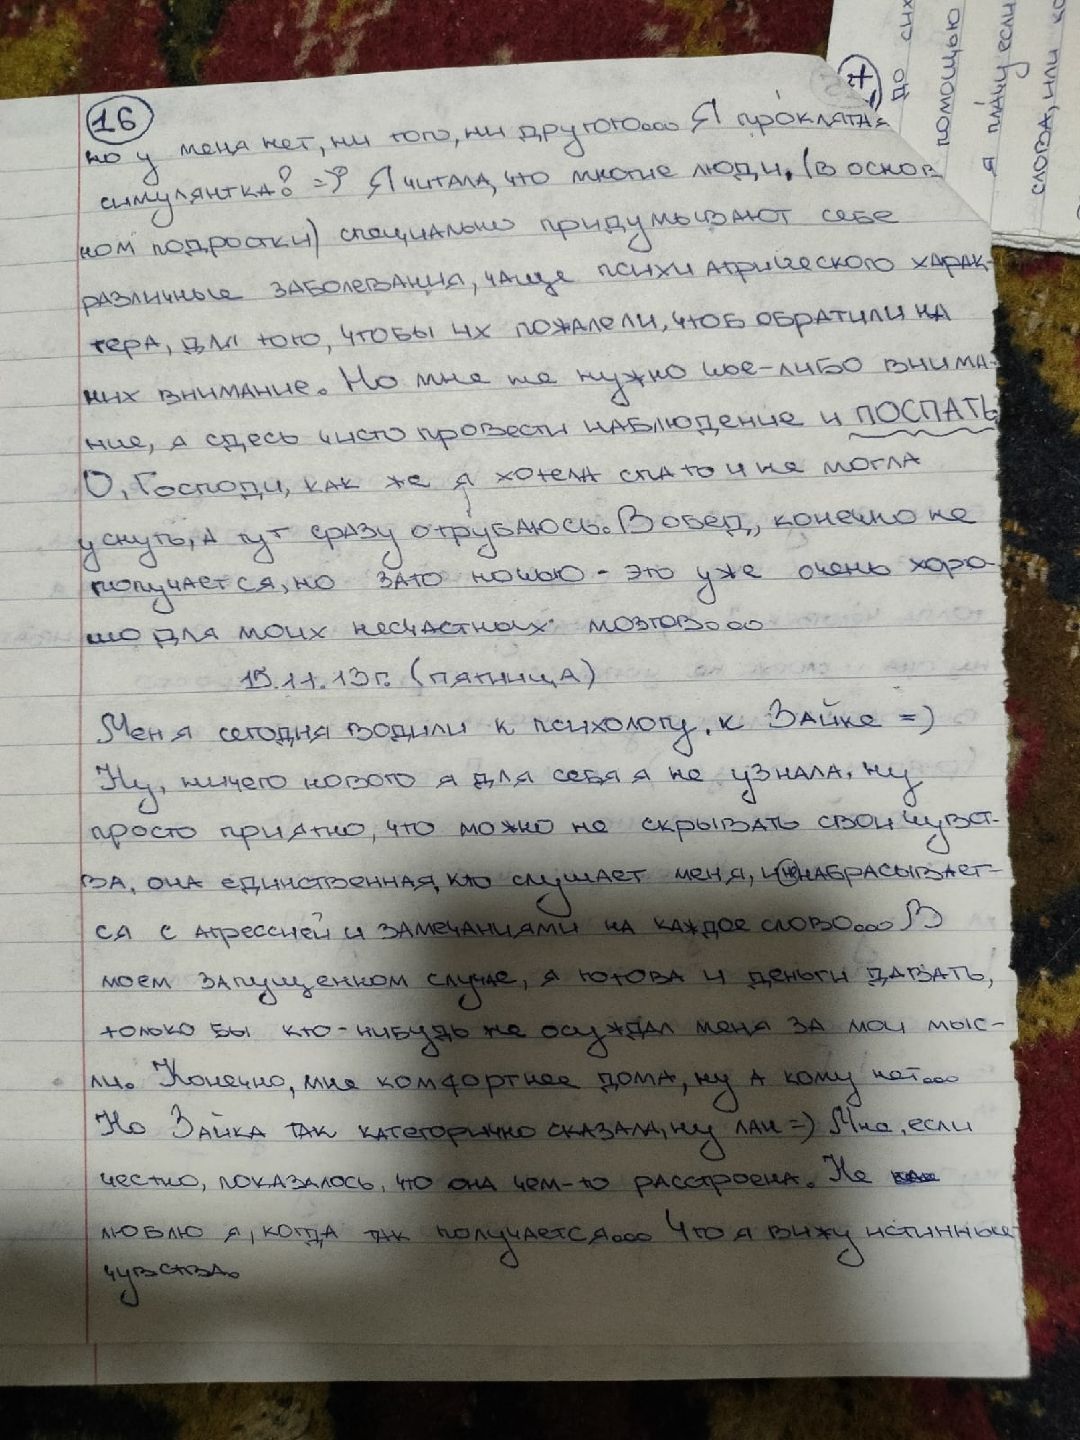 16
но у меня нет, ни того, ни другого... Я проклятая
симулянтка? =? Я читала, что многие люди, (в основ
ном подростки) специально придумывают себе
различные заболевания, чаще психиатрического харак-
тера, для того, чтобы их пожалели, чтоб обратили на
них внимание. Но мне не нужно чье-либо внима-
ние, а здесь чисто провести наблюдение и ПОСПАТЬ
О, Господи, как же я хотела спать и не могла
уснуть, а тут сразу отрубаюсь. В обед, конечно не
получается, но зато ночью - это уже очень хоро-
шо для моих несчастных мозгов...
15.11.13г. (пятница)
Меня сегодня водили к психологу, к Зайке =)
Ну, ничего нового я для себя я не узнала, ну
просто приятно, что можно не скрывать свои чувст-
ва, она единственная, кто слушает меня, и не набрасывает-
ся с агрессией и замечаниями на каждое слово... В
моем запущенном случае, я готова и деньги давать,
только бы кто-нибудь не осуждал меня за мои мыс-
ли. Конечно, мне комфортнее дома, ну а кому нет...
Но Зайка так категорично сказала, ну лан =) Мне, если
честно, показалось, что она чем-то расстроена. Не
люблю я, когда так получается... Что я вижу истинные
чувства.
до сих
помощью
я плачу если
слова, или ко